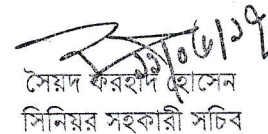 সৈয়দ ফরহাদ হোসেন
সিনিয়র সহকারী সচিব